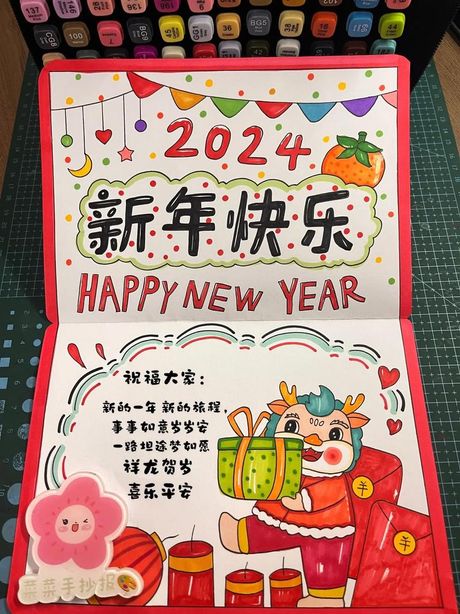 2024
新年快乐
HAPPY NEW YEAR
祝福大家：
新的一年 新的旅程，
事事如意岁岁安
一路坦途梦如愿
祥龙贺岁
喜乐平安
菜菜手抄报
137
100
BG9
36
BG5
44